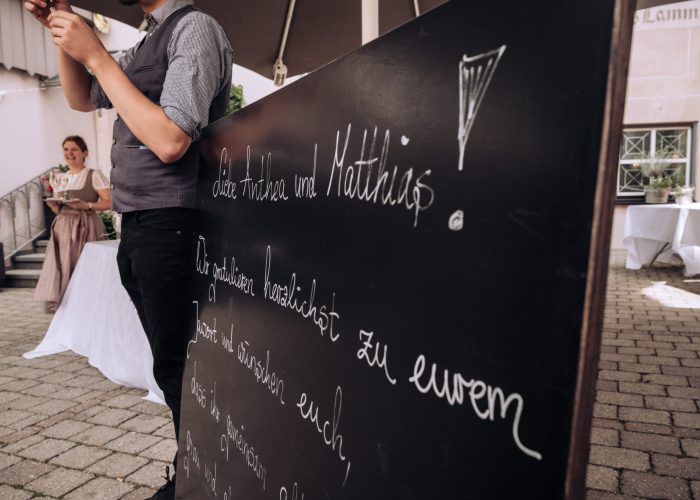 Lamm
Liebe Anthea und Matthias!
Wir gratulieren herzlichst zu eurem
Jawort und wünschen euch,
dass ihr gemeinsam
grau und